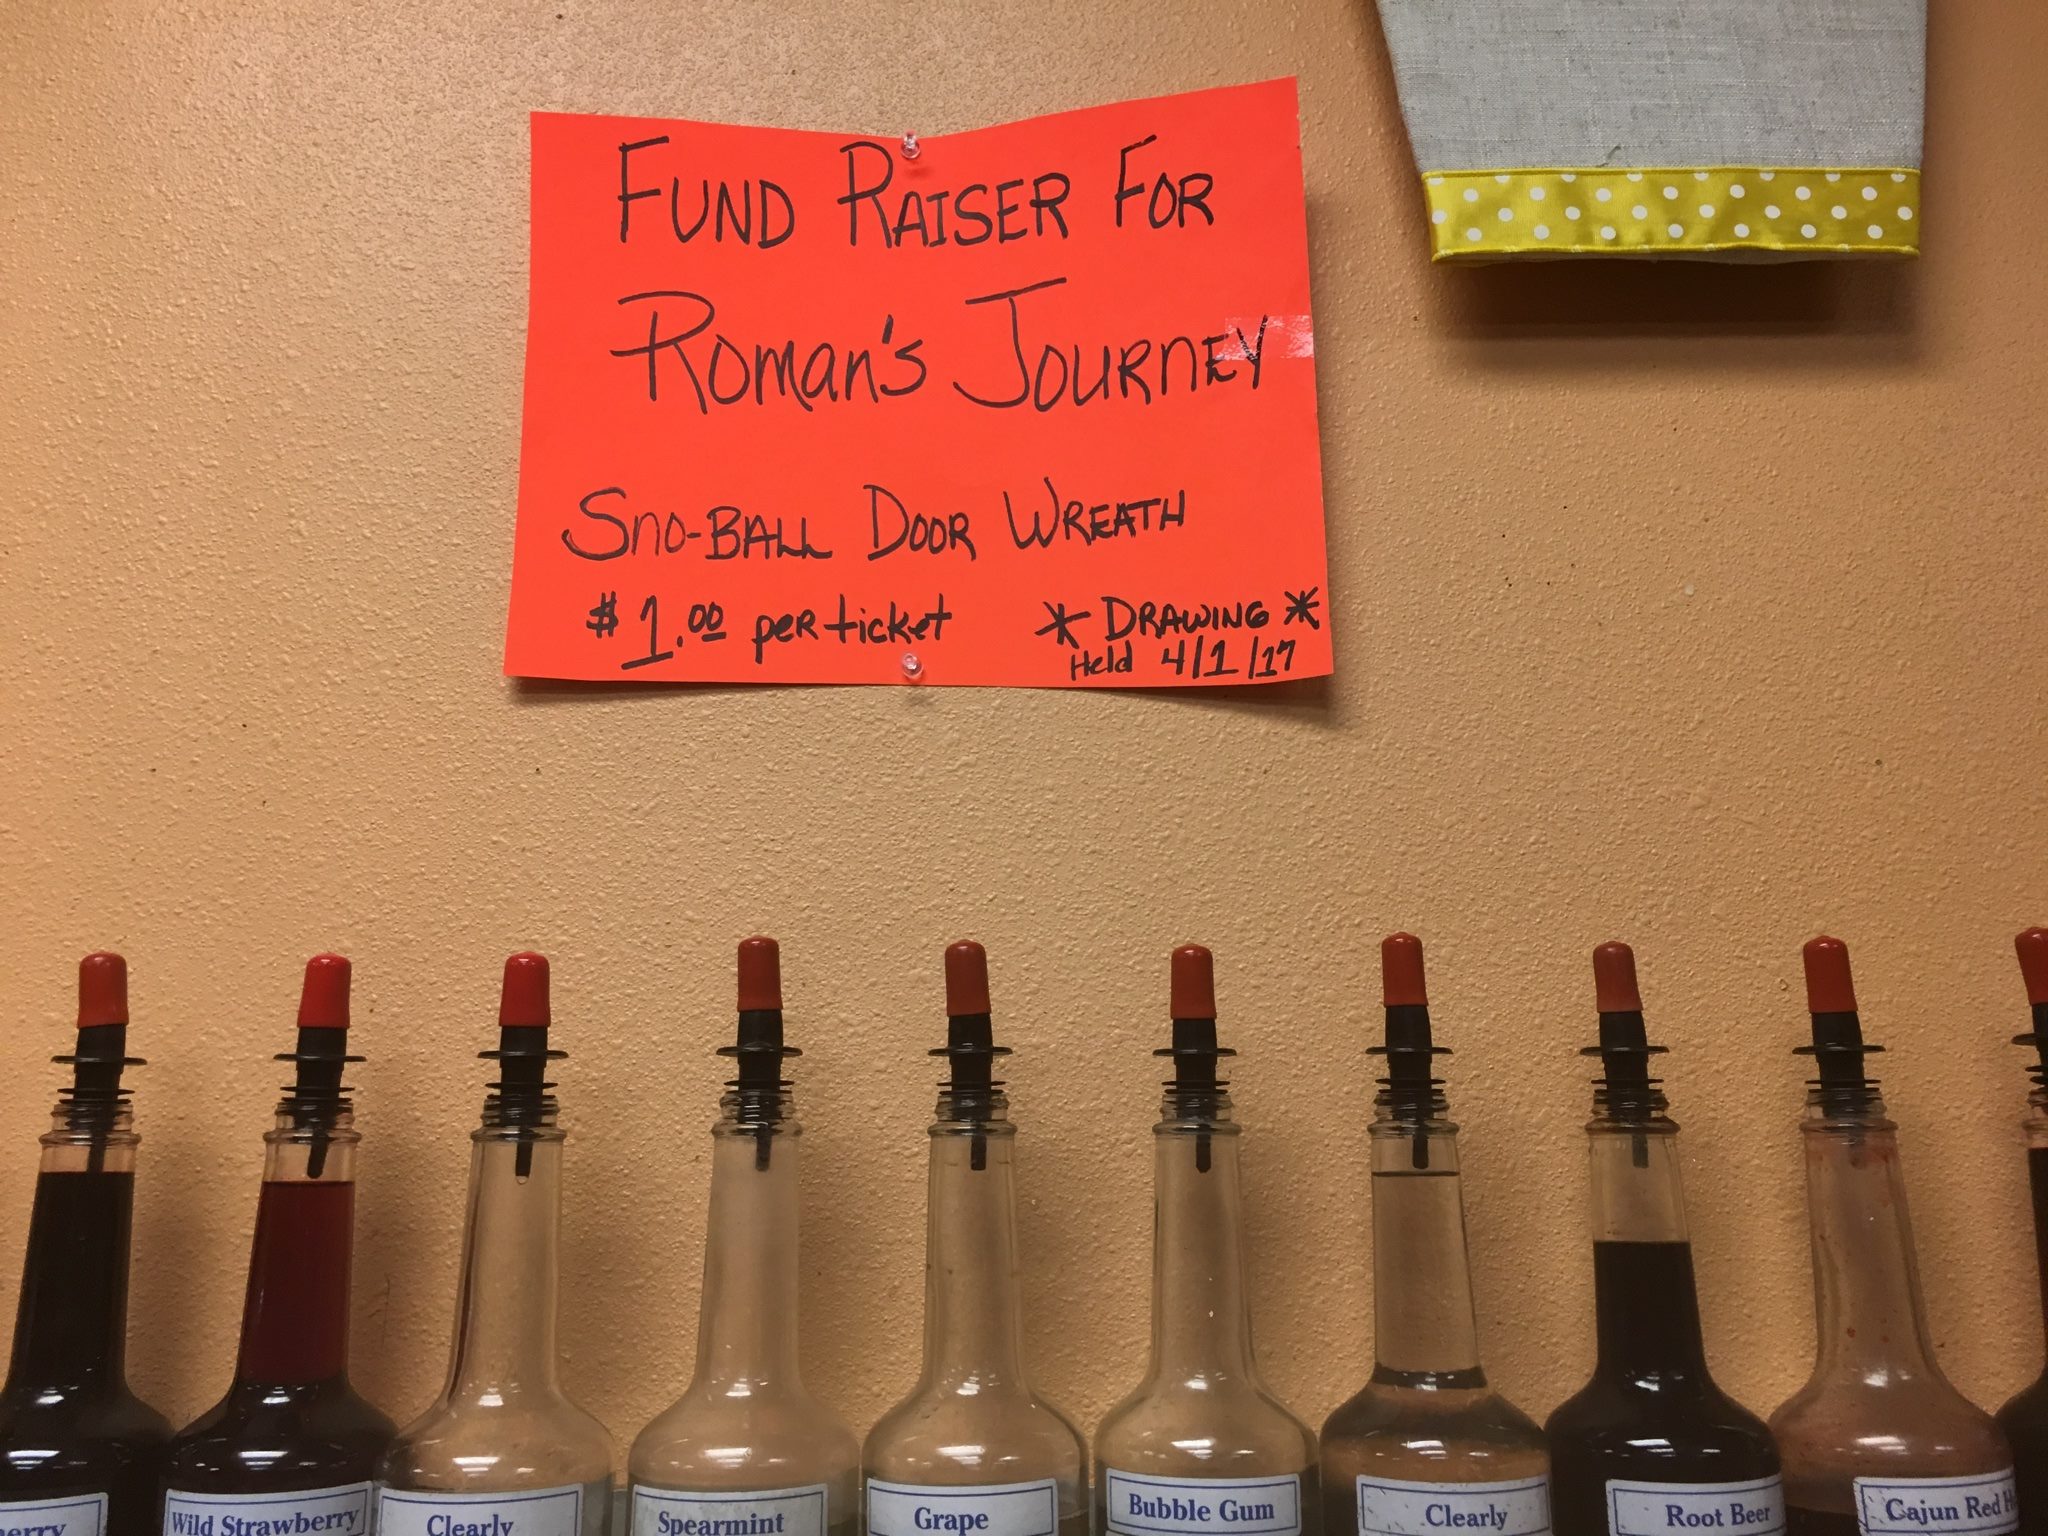 FUND RAISER FOR
ROMAN'S JOURNEY
SNO-BALL DOOR WREATH
$1.00 per ticket
* DRAWING *
Held 4/1/17
Wild Strawberry
Clearly
Spearmint
Grape
Bubble Gum
Clearly
Root Beer
Cajun Red